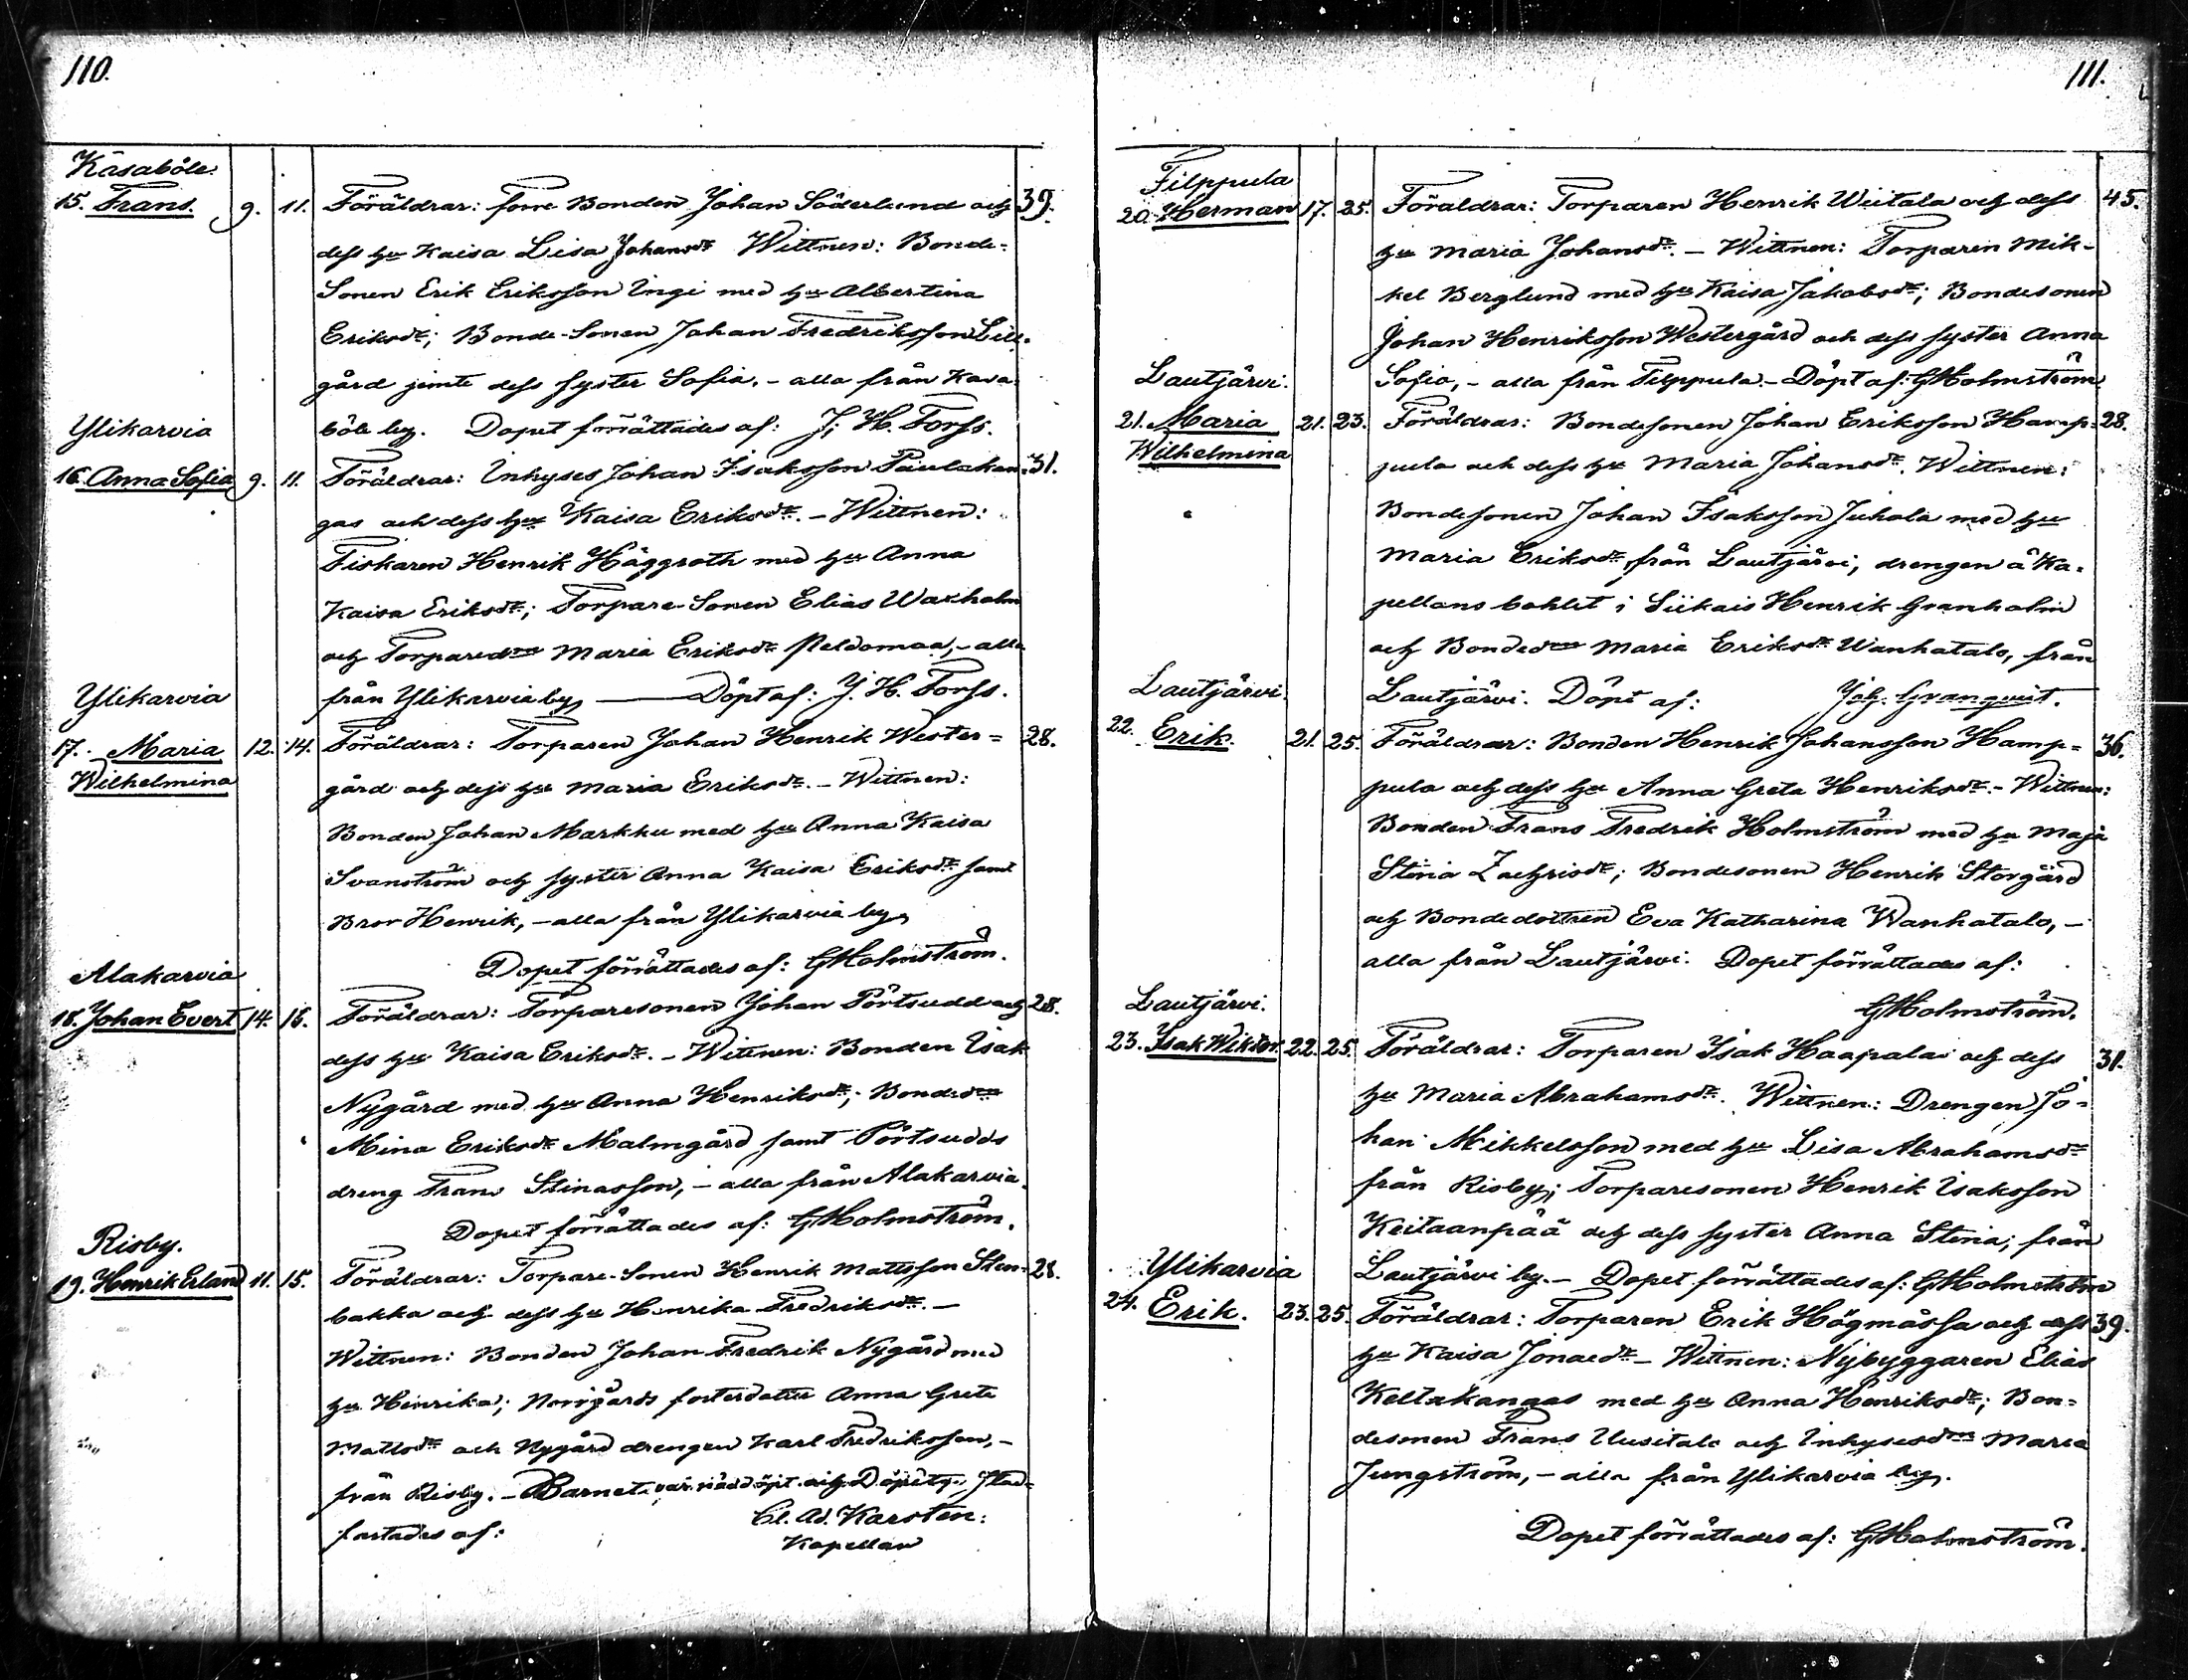 110.
Kasaböle.
15. Frans. 9. 11. Föräldrar: förre Bonden Johan Söderlund och 39.
dess hu Kaisa Lisa Johansdr Wittnen: Bonde-
Sonen Erik Eriksson Ingi med hu Albertina
Eriksdr; Bonde-Sonen Johan Fredriksson Lill-
gård jemte dess syster Sofia, - alla från Kasa-
böle by. Dopet förrättades af: J. H. Forss.
Ylikarvia
16. Anna Sofia 9. 11. Föräldrar: Inhyses Johan Isaksson Paulakan- 31.
gas och dess hu Kaisa Eriksdr. - Wittnen:
Fiskaren Henrik Häggroth med hu Anna
Kaisa Eriksdr; Torpare-Sonen Elias Waxholm
och Torparedrn Maria Eriksdr Peldomaa, - alla
från Ylikarvia by, Döpt af: J. H. Forss.
Ylikarvia
17. Maria 12. 14. Föräldrar: Torparen Johan Henrik Wester= 28.
Wilhelmina
gård och dess hu Maria Eriksdr. - Wittnen:
Bonden Johan Markku med hu Anna Kaisa
Svanström och syster Anna Kaisa Eriksdr samt
Bror Henrik, - alla från Ylikarvia by,
Dopet förrättades af: GHolmström.
Alakarvia
18. Johan Evert 14. 16. Föräldrar: Torparesonen Johan Pörtsudd och 28.
dess hu Kaisa Eriksdr. - Wittnen: Bonden Isak
Nygård med hu Anna Henriksdr; Bondedrn
Mina Eriksdr Malmgård samt Pörtsudds
dreng Frans Stinasson, - alla från Alakarvia.
Dopet förrättades af: GHolmström.
Risby.
19. Henrik Erland 11. 15. Föräldrar: Torpare-Sonen Henrik Mattsson Sten- 28.
bakka och dess hu Henrika Fredriksdr. -
Wittnen: Bonden Johan Fredrik Nygård med
hu Henrika; Norrgårds fosterdotter Anna Greta
Mattsdr och Nygård drengen Karl Fredriksson, -
från Risby. - Barnet var nöddöpt och Dopet stad-
fästades af: Cl. Ad. Karsten:
Kapellan
111.
Filppula
20. Herman 17. 25. Föräldrar: Torparen Henrik Wiitala och dess 45.
hu Maria Johansdr. - Wittnen: Torparen Mik-
kel Berglund med hu Kaisa Jakobsdr; Bondesonen
Johan Henriksson Westergård och dess syster Anna
Sofia, - alla från Filppula. - Döpt af: GHolmström
Lautjärvi.
21. Maria 21. 23. Föräldrar: Bondesonen Johan Eriksson Hamp- 28.
Wilhelmina
pula och dess hu Maria Johansdr. Wittnen:
Bondesonen Johan Isaksson Juhola med hu
Maria Eriksdr från Lautjärvi, drengen å Ka-
pellans bohlet i Siikais Henrik Granholm
och Bondedrn Maria Eriksdr Wanhatalo, från
Lautjärvi. Döpt af: Joh. Granqvist.
Lautjärvi.
22. Erik. 21. 25. Föräldrar: Bonden Henrik Johansson Hamp= 36.
pula och dess hu Anna Greta Henriksdr. - Wittnen:
Bonden Frans Fredrik Holmström med hu Maja
Stina Zachrisdr; Bondesonen Henrik Storgård
och Bondedottren Eva Katharina Wanhatalo, -
alla från Lautjärvi. Dopet förrättades af:
GHolmström.
Lautjärvi.
23. Isak Wiktor. 22. 25. Föräldrar: Torparen Isak Haapala och dess 31.
hu Maria Abrahamsdr. Wittnen: Drengen Jo-
han Mikkelsson med hu Lisa Abrahamsdr
från Risby; Torparesonen Henrik Isaksson
Keitaanpää och dess syster Anna Stina; från
Lautjärvi by. - Dopet förrättades af: GHolmström
Ylikarvia
24. Erik. 23. 25. Föräldrar: Torparen Erik Högmåssa och dess 39.
hu Kaisa Jonaedr - Wittnen: Nybyggaren Elias
Keltakangas med hu Anna Henriksdr; Bon=
desonen Frans Uusitalo och Inhysesdrn Maria
Jungström, - alla från Ylikarvia by.
Dopet förrättades af: GHolmström.